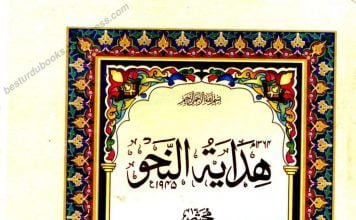 besturdubooks.wordpress.com
بسم الله الرحمن الرحيم
هداية النحو
۱۹۴۵ء